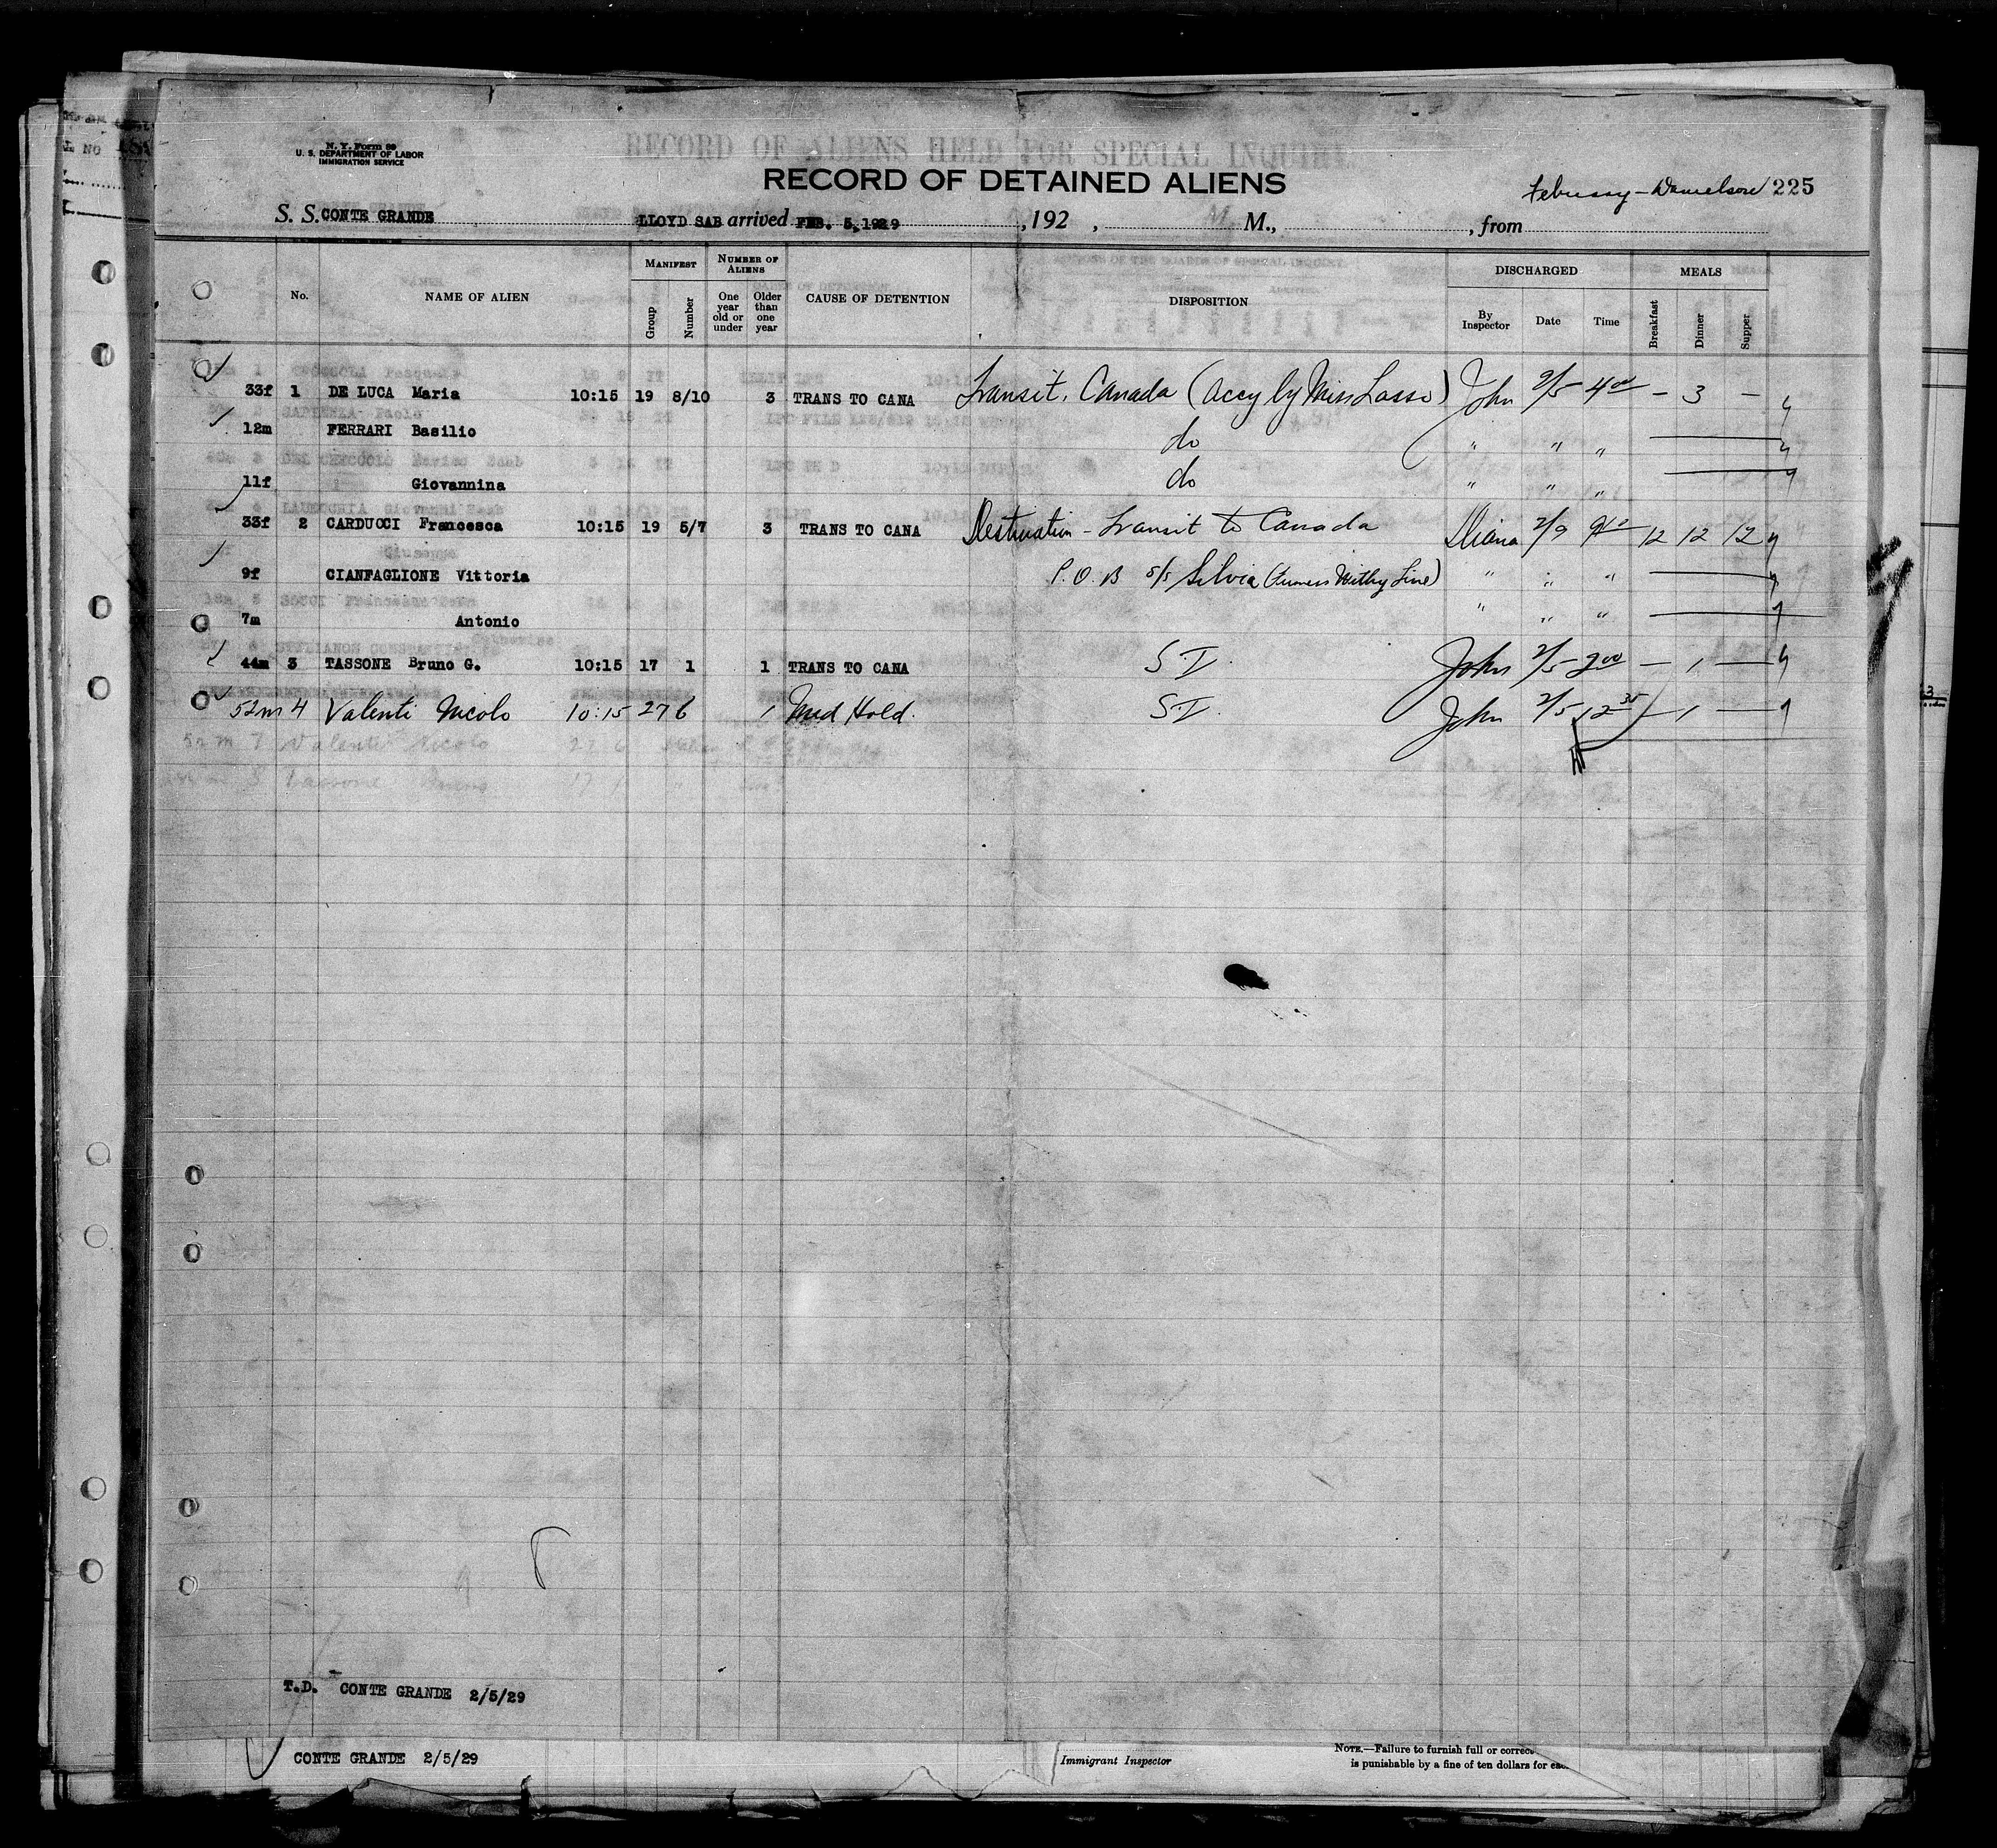 N. Y. Form 89
U. S. DEPARTMENT OF LABOR
IMMIGRATION SERVICE
RECORD OF ALIENS HELD FOR SPECIAL INQUIRY
RECORD OF DETAINED ALIENS
225
S. S. CONTE GRANDE LLOYD SAB arrived FEB. 5, 1929 , 192 , M., , from
No. NAME OF ALIEN MANIFEST Group Number NUMBER OF ALIENS One year old or under Older than one year CAUSE OF DETENTION DISPOSITION DISCHARGED By Inspector Date Time MEALS Breakfast Dinner Supper
33f 1 DE LUCA Maria 10:15 19 8/10 3 TRANS TO CANA Transit, Canada (Accy by Miss Lasso) John 2/5 4 00 – 3 –
12m FERRARI Basilio do " " "
11f Giovannina do " " "
33f 2 CARDUCCI Francesca 10:15 19 5/7 3 TRANS TO CANA Destination - Transit to Canada Diana 2/9 12 12 12
9f CIANFAGLIONE Vittoria P.O.B S/S Silvia (Furness Withy Line) " " "
7m Antonio " " "
44m 3 TASSONE Bruno G. 10:15 17 1 1 TRANS TO CANA S.I. John 2/5 2 00 – 1 –
52m 4 Valenti Nicolo 10:15 27 6 1 Med Hold. S.I. John 2/5 12 35 – 1 –
52 m 7 Valenti Nicolo 27 6
8 Tassone Bruno 17 1
T.D. CONTE GRANDE 2/5/29
CONTE GRANDE 2/5/29
Immigrant Inspector
NOTE.—Failure to furnish full or correct
is punishable by a fine of ten dollars for